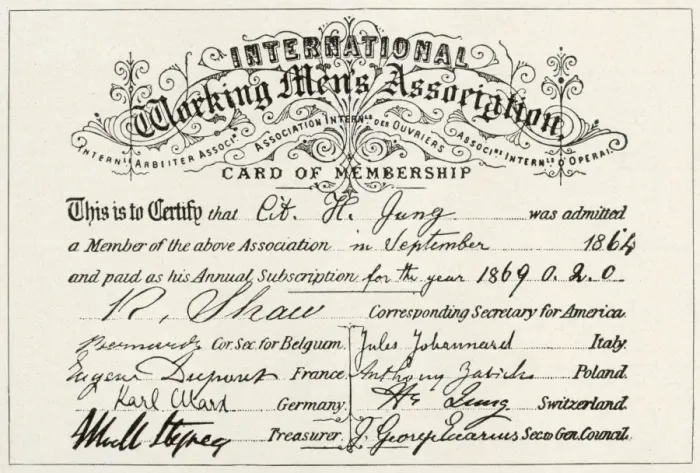 INTERNATIONAL
Working Men's Association
INTERN.LE ARBEITER ASSOCI.N ASSOCIATION INTERN.LE DES OUVRIERS ASSOCI.NE INTERN.LE D'OPERAI.
CARD OF MEMBERSHIP
This is to Certify that Cit. H. Jung was admitted
a Member of the above Association in September 1864
and paid as his Annual Subscription for the year 1869 0. 2. 0
R. Shaw Corresponding Secretary for America.
Bernard Cor. Sec. for Belguim. Jules Johannard Italy.
Eugene Dupont France. Anthony Zabicki Poland.
Karl Marx Germany. H. Jung Switzerland.
Treasurer. J. George Eccarius Sec.to Gen.Council.